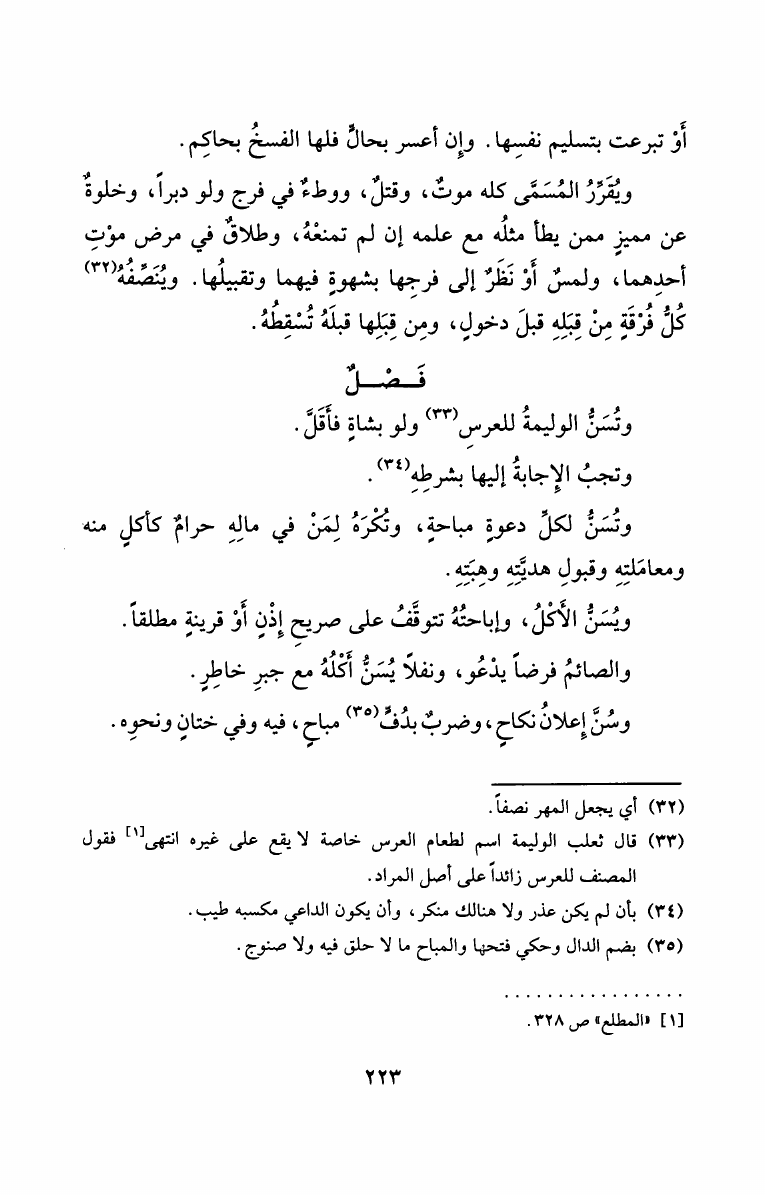 أَوْ تبرعت بتسليم نفسِها. وإِن أعسر بحالٍّ فلها الفسخُ بحاكِم.
ويُقَرِّرُ المُسَمَّى كله موتٌ، وقتلٌ، ووطءٌ في فرج ولو دبراً، وخلوةٌ
عن مميزٍ ممن يطأ مثلُه مع علمه إن لم تمنعْهُ، وطلاقٌ في مرض موْتِ
أحدِهما، ولمسٌ أَوْ نَظَرٌ إلى فرجِها بشهوةٍ فيهما وتقبيلُها. ويُنَصِّفُهُ(٣٢)
كُلُّ فُرْقَةٍ مِنْ قِبَلِهِ قبلَ دخولٍ، ومِن قِبَلِها قبلَهُ تُسْقِطُهُ.
فَـصْـلٌ
وتُسَنُّ الوليمةُ للعرسِ(٣٣) ولو بشاةٍ فأَقَلَّ.
وتجبُ الإِجابةُ إليها بشرطِهِ(٣٤).
وتُسَنُّ لكلِّ دعوةٍ مباحةٍ، وتُكْرَهُ لِمَنْ في مالِهِ حرامٌ كأكلٍ منه
ومعامَلتِهِ وقبولِ هديَّتِهِ وهِبَتِهِ.
ويُسَنُّ الأَكْلُ، وإباحتُهُ تتوقَّفُ على صريحِ إِذْنٍ أَوْ قرينةٍ مطلقاً.
والصائمُ فرضاً يدْعُو، ونفلاً يُسَنُّ أَكْلُهُ مع جبرِ خاطِرٍ.
وسُنَّ إعلانُ نكاحٍ، وضربٌ بدُفٍّ(٣٥) مباحٍ، فيه وفي ختانٍ ونحوِه.
(٣٢) أي يجعل المهر نصفاً.
(٣٣) قال ثعلب الوليمة اسم لطعام العرس خاصة لا يقع على غيره انتهى[١] فقول
المصنف للعرس زائداً على أصل المراد.
(٣٤) بأن لم يكن عذر ولا هنالك منكر، وأن يكون الداعي مكسبه طيب.
(٣٥) بضم الدال وحكي فتحها والمباح ما لا حلق فيه ولا صنوج.
. . . . . . . . . . . . . . . . .
[١] «المطلع» ص ٣٢٨.
٢٢٣